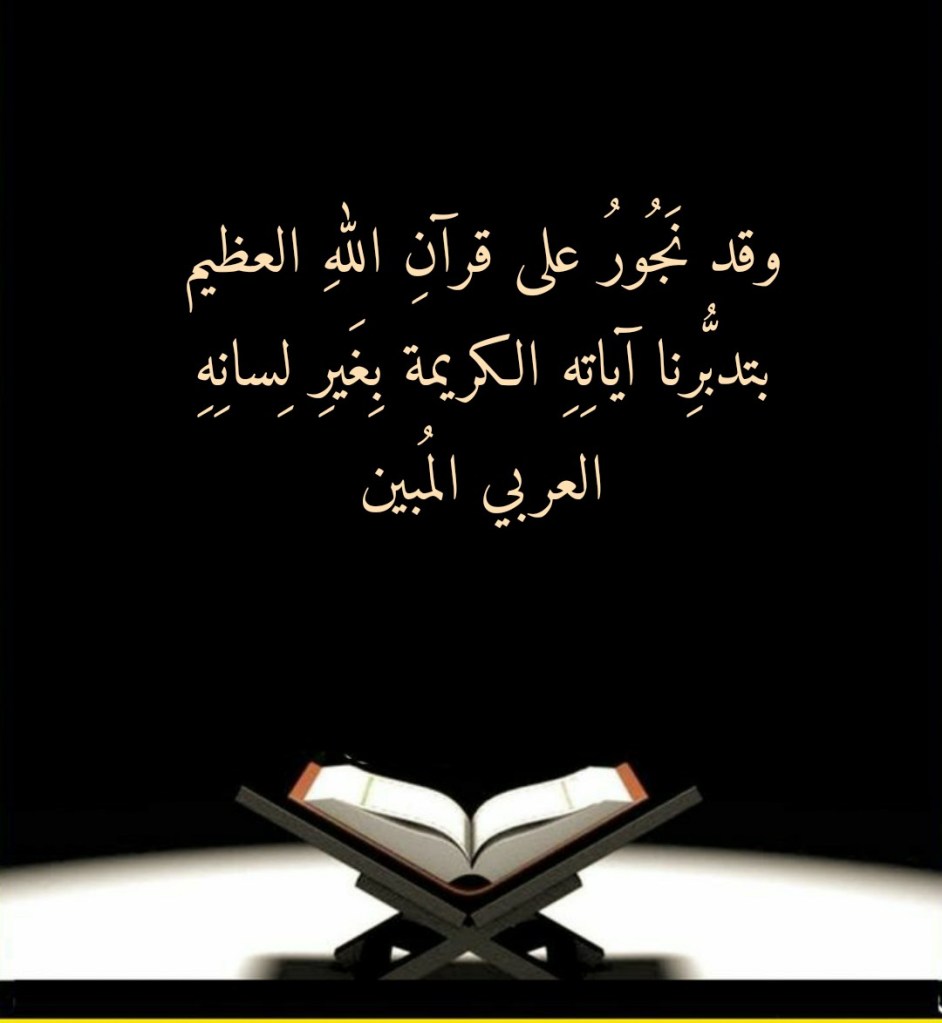 وقد نَجُورُ على قرآنِ اللهِ العظيم
بتدبُّرِنا آياتِهِ الكريمة بِغَيرِ لِسانِهِ
العربي المُبين